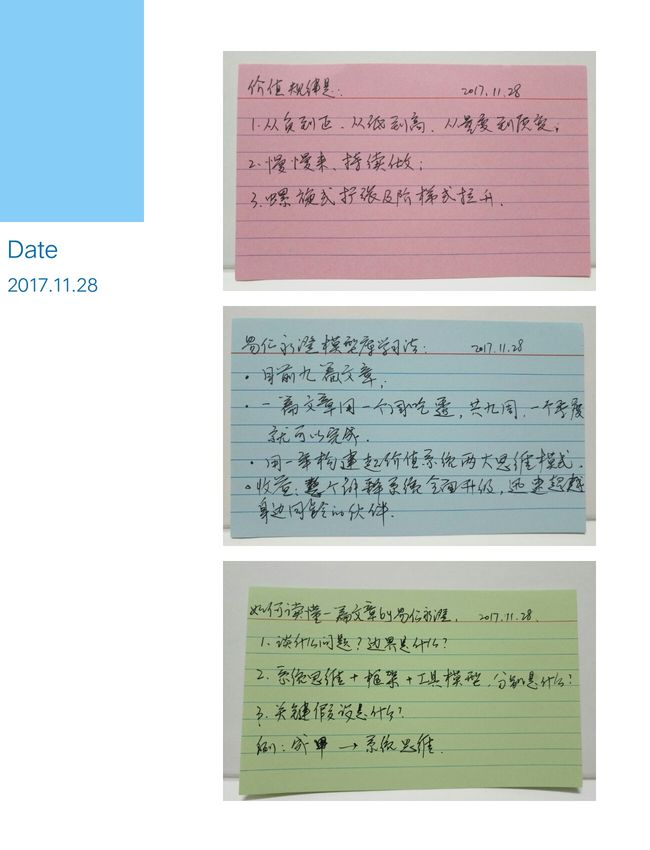 Date
2017.11.28
价值规律是： 2017.11.28
1. 从负到正、从低到高、从单度到顶变；
2. 慢慢来、持续做；
3. 螺旋式扩张及阶梯式拉升.
易仁永澄模型库学习法： 2017.11.28
· 目前九篇文章；
· 一篇文章用一个周吃透，共九周，一个季度
就可以完成.
· 用一年构建起价值系统两大思维模式.
· 收益：整个解释系统全面升级，迅速超越
身边同龄的伙伴.
如何读懂一篇文章by易仁永澄. 2017.11.28.
1. 谈什么问题？边界是什么？
2. 系统思维+框架+工具模型，分别是什么？
3. 关键假设是什么？
例：成甲 → 系统思维.